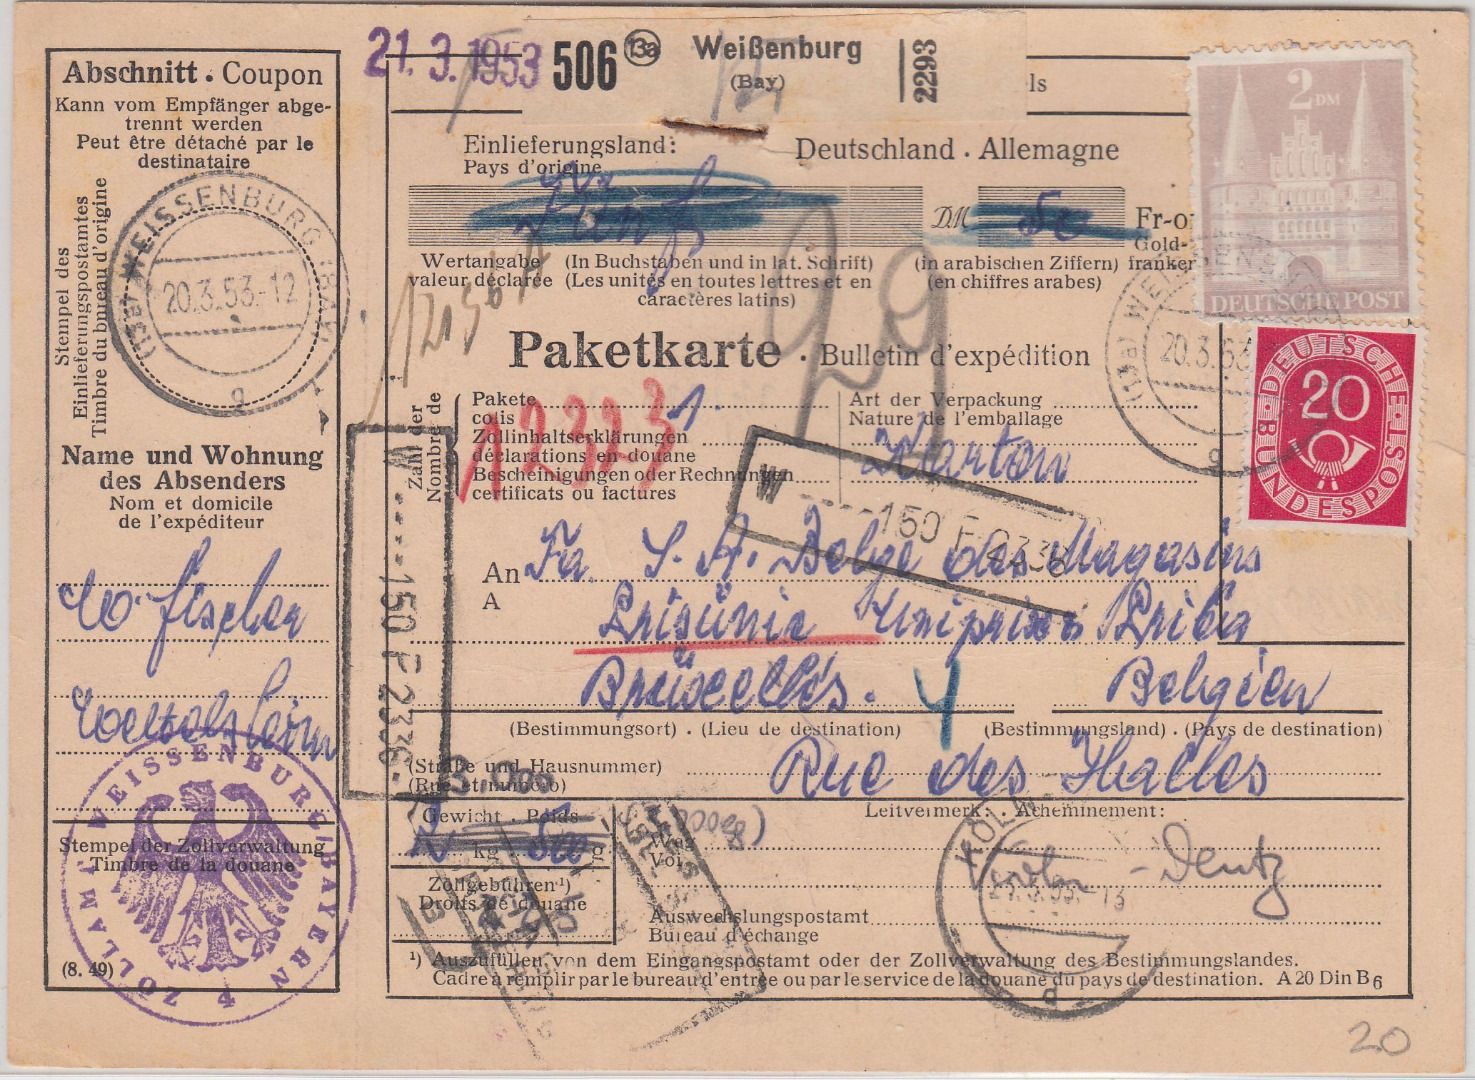 21. 3. 1953 506 13a Weißenburg
(Bay) 2293
Abschnitt . Coupon
Kann vom Empfänger abge-
trennt werden
Peut être détaché par le
destinataire
Stempel des
Einlieferungspostamtes
Timbre du bureau d'origine
(13a) WEISSENBURG (BAY)
20.3.53.-12
a
Name und Wohnung
des Absenders
Nom et domicile
de l'expéditeur
W. Fischer
Stempel der Zollverwaltung
Timbre de la douane
ZOLLAMT WEISSENBURG/BAYERN
4
(8. 49)
els
Einlieferungsland:
Pays d'origine
Deutschland . Allemagne
Fünf
DM 50 Fr-or
Gold-
franken
Wertangabe (In Buchstaben und in lat. Schrift) (in arabischen Ziffern)
valeur déclarée (Les unités en toutes lettres et en (en chiffres arabes)
caractères latins)
29
Paketkarte . Bulletin d'expédition
2 DM
DEUTSCHE POST
20.3.53
DEUTSCHE BUNDESPOST
20
Zahl der
Nombre de
Pakete 1.
colis
Zollinhaltserklärungen
déclarations en douane
Bescheinigungen oder Rechnungen
certificats ou factures
12323
Art der Verpackung
Nature de l'emballage
Karton
W ----150 F 2336
W -----150 F 2336-
An Fa. S. A. Belge des Magasins
A
Prisunic Uniprix Priba
Brüxelles. Belgien
(Bestimmungsort) . (Lieu de destination) (Bestimmungsland) . (Pays de destination)
4
(Straße und Hausnummer)
(Rue et numéro)
Rue des Halles
Gewicht . Poids
kg
g
Leitvermerk: . Acheminement:
Weg
Voie
Köln - Deutz
KÖLN
Zollgebühren¹)
Droits de douane
Auswechslungspostamt
Bureau d'échange
¹) Auszufüllen von dem Eingangspostamt oder der Zollverwaltung des Bestimmungslandes.
Cadre à remplir par le bureau d'entrée ou par le service de la douane du pays de destination. A 20 Din B 6
20